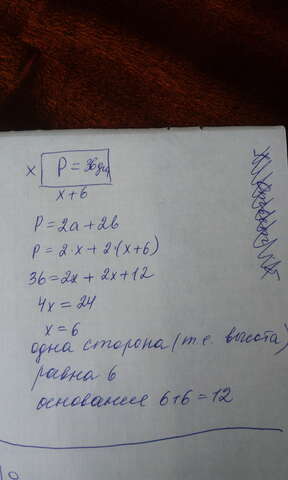 x P = 36 дм
x + 6
P = 2a + 2b
P = 2·x + 2·(x+6)
36 = 2x + 2x + 12
4x = 24
x = 6
одна сторона (т.е. высота)
равна 6
основание 6+6 = 12